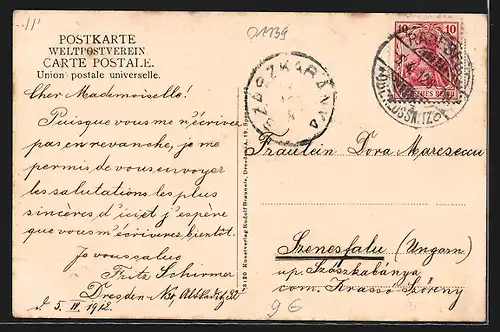 01139
POSTKARTE
WELTPOSTVEREIN
CARTE POSTALE.
Union postale universelle.
Cher Mademoiselle!
Puisque vous me n'écrivez
pas en revanche, je me
permis de vous envoyer
les salutations les plus
sincères d'ici et j'espère
que vous m'écriverez bientôt.
Je vous salue
Fritz Schirmer
Dresden-N
5. IV. 1912.
10 10
DEUTSCHES REICH
SZASZKABÁNYA
Kunstverlag Rudolf Brauneis, Dresden-A. 19.
Fräulein Dora Maresecau
Szenesfalu (Ungarn)
up. Szászkabánya
com. Krassó Szörény
96